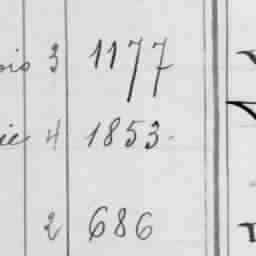 ois 3 1177
ie 4 1853.
2 686